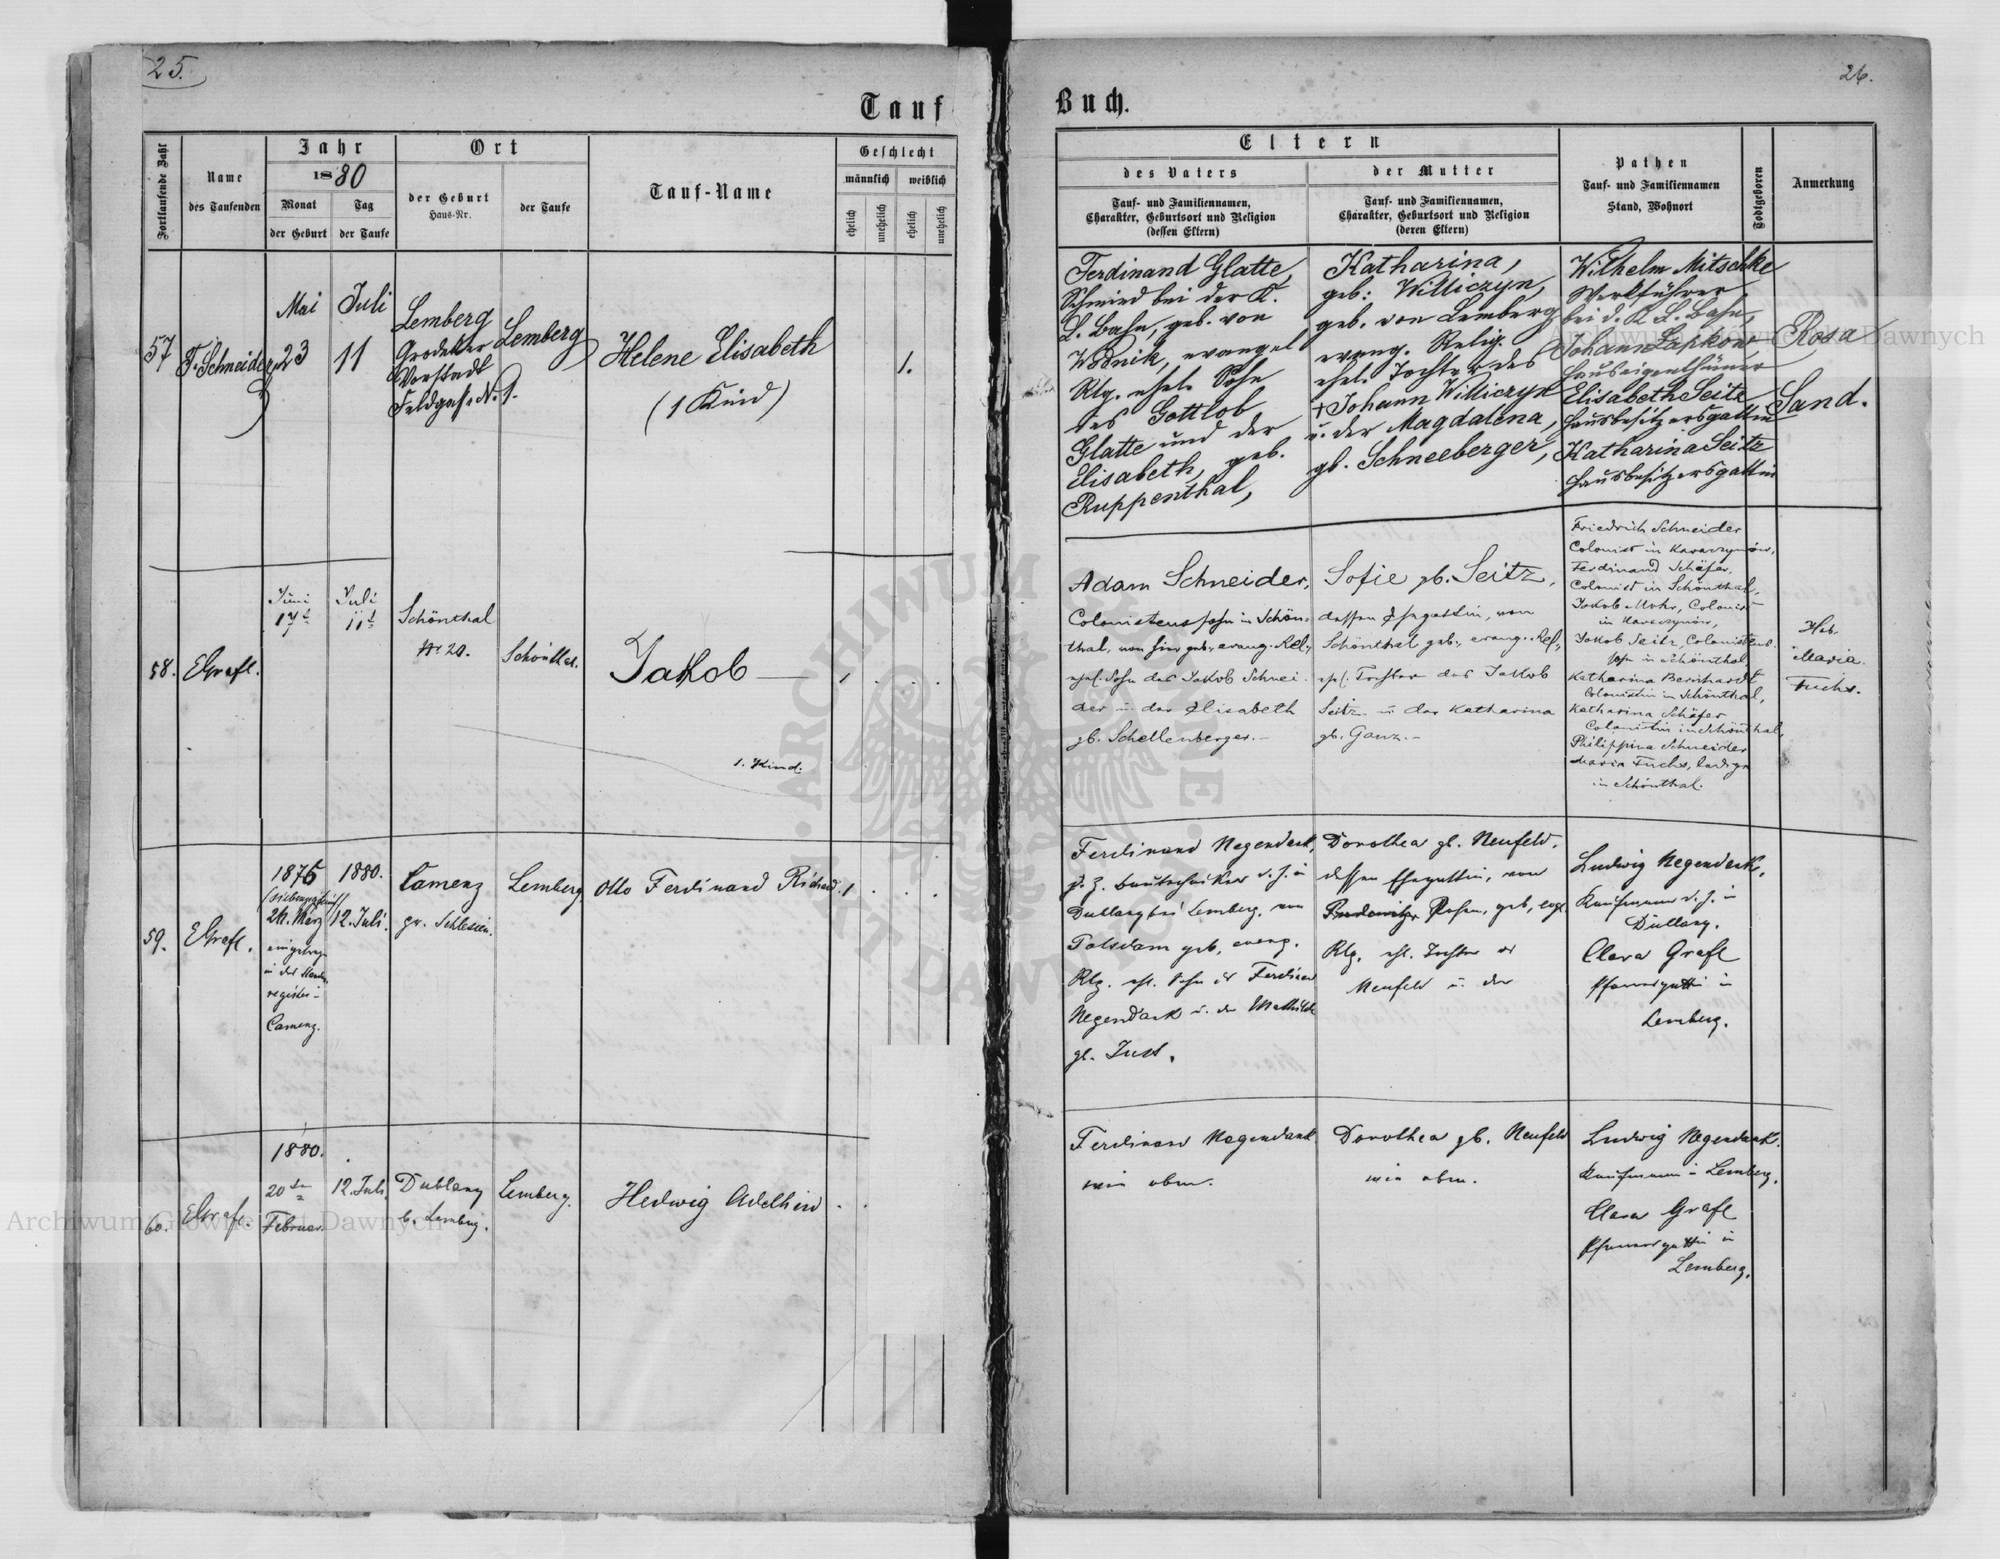 25.
Tauf
Fortlaufende Zahl
Name
des Taufenden
Jahr
1880
Monat
der Geburt
Tag
der Taufe
Ort
der Geburt
Haus-Nr.
der Taufe
Tauf-Name
Geschlecht
männlich
weiblich
ehelich
unehelich
ehelich
unehelich
57
F. Schneider
Mai
23
Juli
11
Lemberg
Grodeker
Vorstadt
Feldgasse N. 1.
Lemberg
Helene Elisabeth
(1 Kind)
1.
58.
EGrafl.
Juni
17t
Juli
11t
Schönthal
Nr 20.
Schönthal.
Jakob
1. Kind.
59.
EGrafl.
1876
24. März
in der
register
Camenz.
1880.
12. Juli.
Camenz
pr. Schlesien.
Lemberg
Otto Ferdinand Richard.
1
60.
EGrafl.
1880.
20ten
Februar.
12. Juli
Dublany
b. Lemberg.
Lemberg.
Hedwig
26.
Buch.
Eltern
des Vaters
Tauf- und Familiennamen,
Charakter, Geburtsort und Religion
(dessen Eltern)
der Mutter
Tauf- und Familiennamen,
Charakter, Geburtsort und Religion
(deren Eltern)
Pathen
Tauf- und Familiennamen
Stand, Wohnort
Todtgeboren
Anmerkung
Ferdinand Glatte,
Schmied bei der K.
L. Bahn, geb. von
evangel
Rlg. ehel. Sohn
des Gottlob
Glatte und der
Elisabeth, geb.
Ruppenthal,
Katharina,
geb: Williczyn,
geb. von Lemberg
evang. Relig.
ehel. Tochter des
+ Johann Williczyn
u. der Magdalena,
gb. Schneeberger,
Wilhelm Mitschke
Werkführer
bei d. K. L. Bahn,
Johann Lapkow
Hauseigenthümer
Elisabeth Seitz
Hausbesitzersgattin
Katharina Seitz
Hausbesitzersgattin
Rosa
Sand.
Adam Schneider,
Colonistenssohn in Schön-
thal, von hier geb., evang. Rel.,
ehel. Sohn des Jakob Schnei-
der u. der Elisabeth
gb. Schellenberger.-
Sofie gb. Seitz,
dessen Ehegattin, von
Schönthal geb., evang. Rel.,
ehel. Tochter des Jakob
Seitz u. der Katharina
gb. Ganz.-
Friedrich Schneider
Colonist in
Ferdinand Schäfer,
Colonist in Schönthal,
Jakob Mohr, Colonist
in
Jakob Seitz, Colonistens-
sohn in Schönthal
Katharina Bernhardt
Colonistin in Schönthal,
Katharina Schäfer
Colonistin in Schönthal,
Philippina Schneider
Maria Fuchs, ledige
in Schönthal.
Heb.
Maria
Fuchs.
Ferdinand Negendank,
d. Z. in
Dublany bei Lemberg, von
Potsdam geb., evang.
Rlg. ehl. Sohn des Ferdinand
Negendank u. der Mathilde
gb. Just.
Dorothea gb. Neufeld,
dessen Ehegattin, von
Posen, geb., evgl.
Rlg. ehl. Tochter des
Neufeld u. der
Ludwig Negendank,
Kaufmann d. Z. in
Dublany.
Clara Grafl
Pfarrersgattin in
Lemberg.
Ferdinand Negendank
wie oben.
Dorothea gb. Neufeld
wie oben.
Ludwig Negendank.
Kaufmann in Lemberg.
Clara Grafl
Pfarrersgattin in
Lemberg.